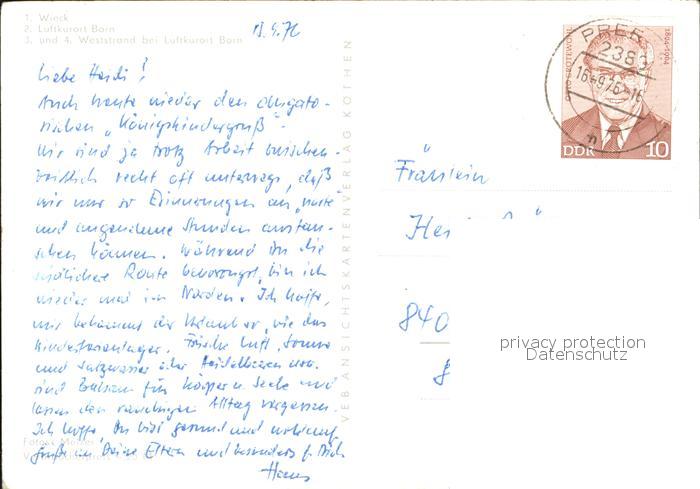 1. Wieck
2. Luftkurort Born
3. und 4. Weststrand bei Luftkurort Born
13.9.76
Liebe Heidi!
Auch heute wieder den obligato-
rischen „Königskindergruß".
Wir sind ja trotz Arbeit zwischen-
zeitlich recht oft unterwegs, daß
wir nur so Erinnerungen an „nette"
und angenehme Stunden austau-
schen können. Während Du die
südlichere Route bevorzugst, bin ich
wieder mal im Norden. Ich hoffe,
mir bekommt der Urlaub so, wie das
Kinderferienlager. Frische Luft, Sonne
und Salzwasser, aber Heidelbeeren usw.
sind Balsam für Körper u. Seele und
lassen den Alltag vergessen.
Ich hoffe, Du bist gesund und
Grüße an Deine Eltern und besonders f. Dich
Hans
Fotos:
VEB ANSICHTSKARTENVERLAG KÖTHEN
OTTO GROTEWOHL
1894-1964
DDR 10
PRER
2383
16-9.76-16
Fräulein
Hei
840
8
privacy protection
Datenschutz